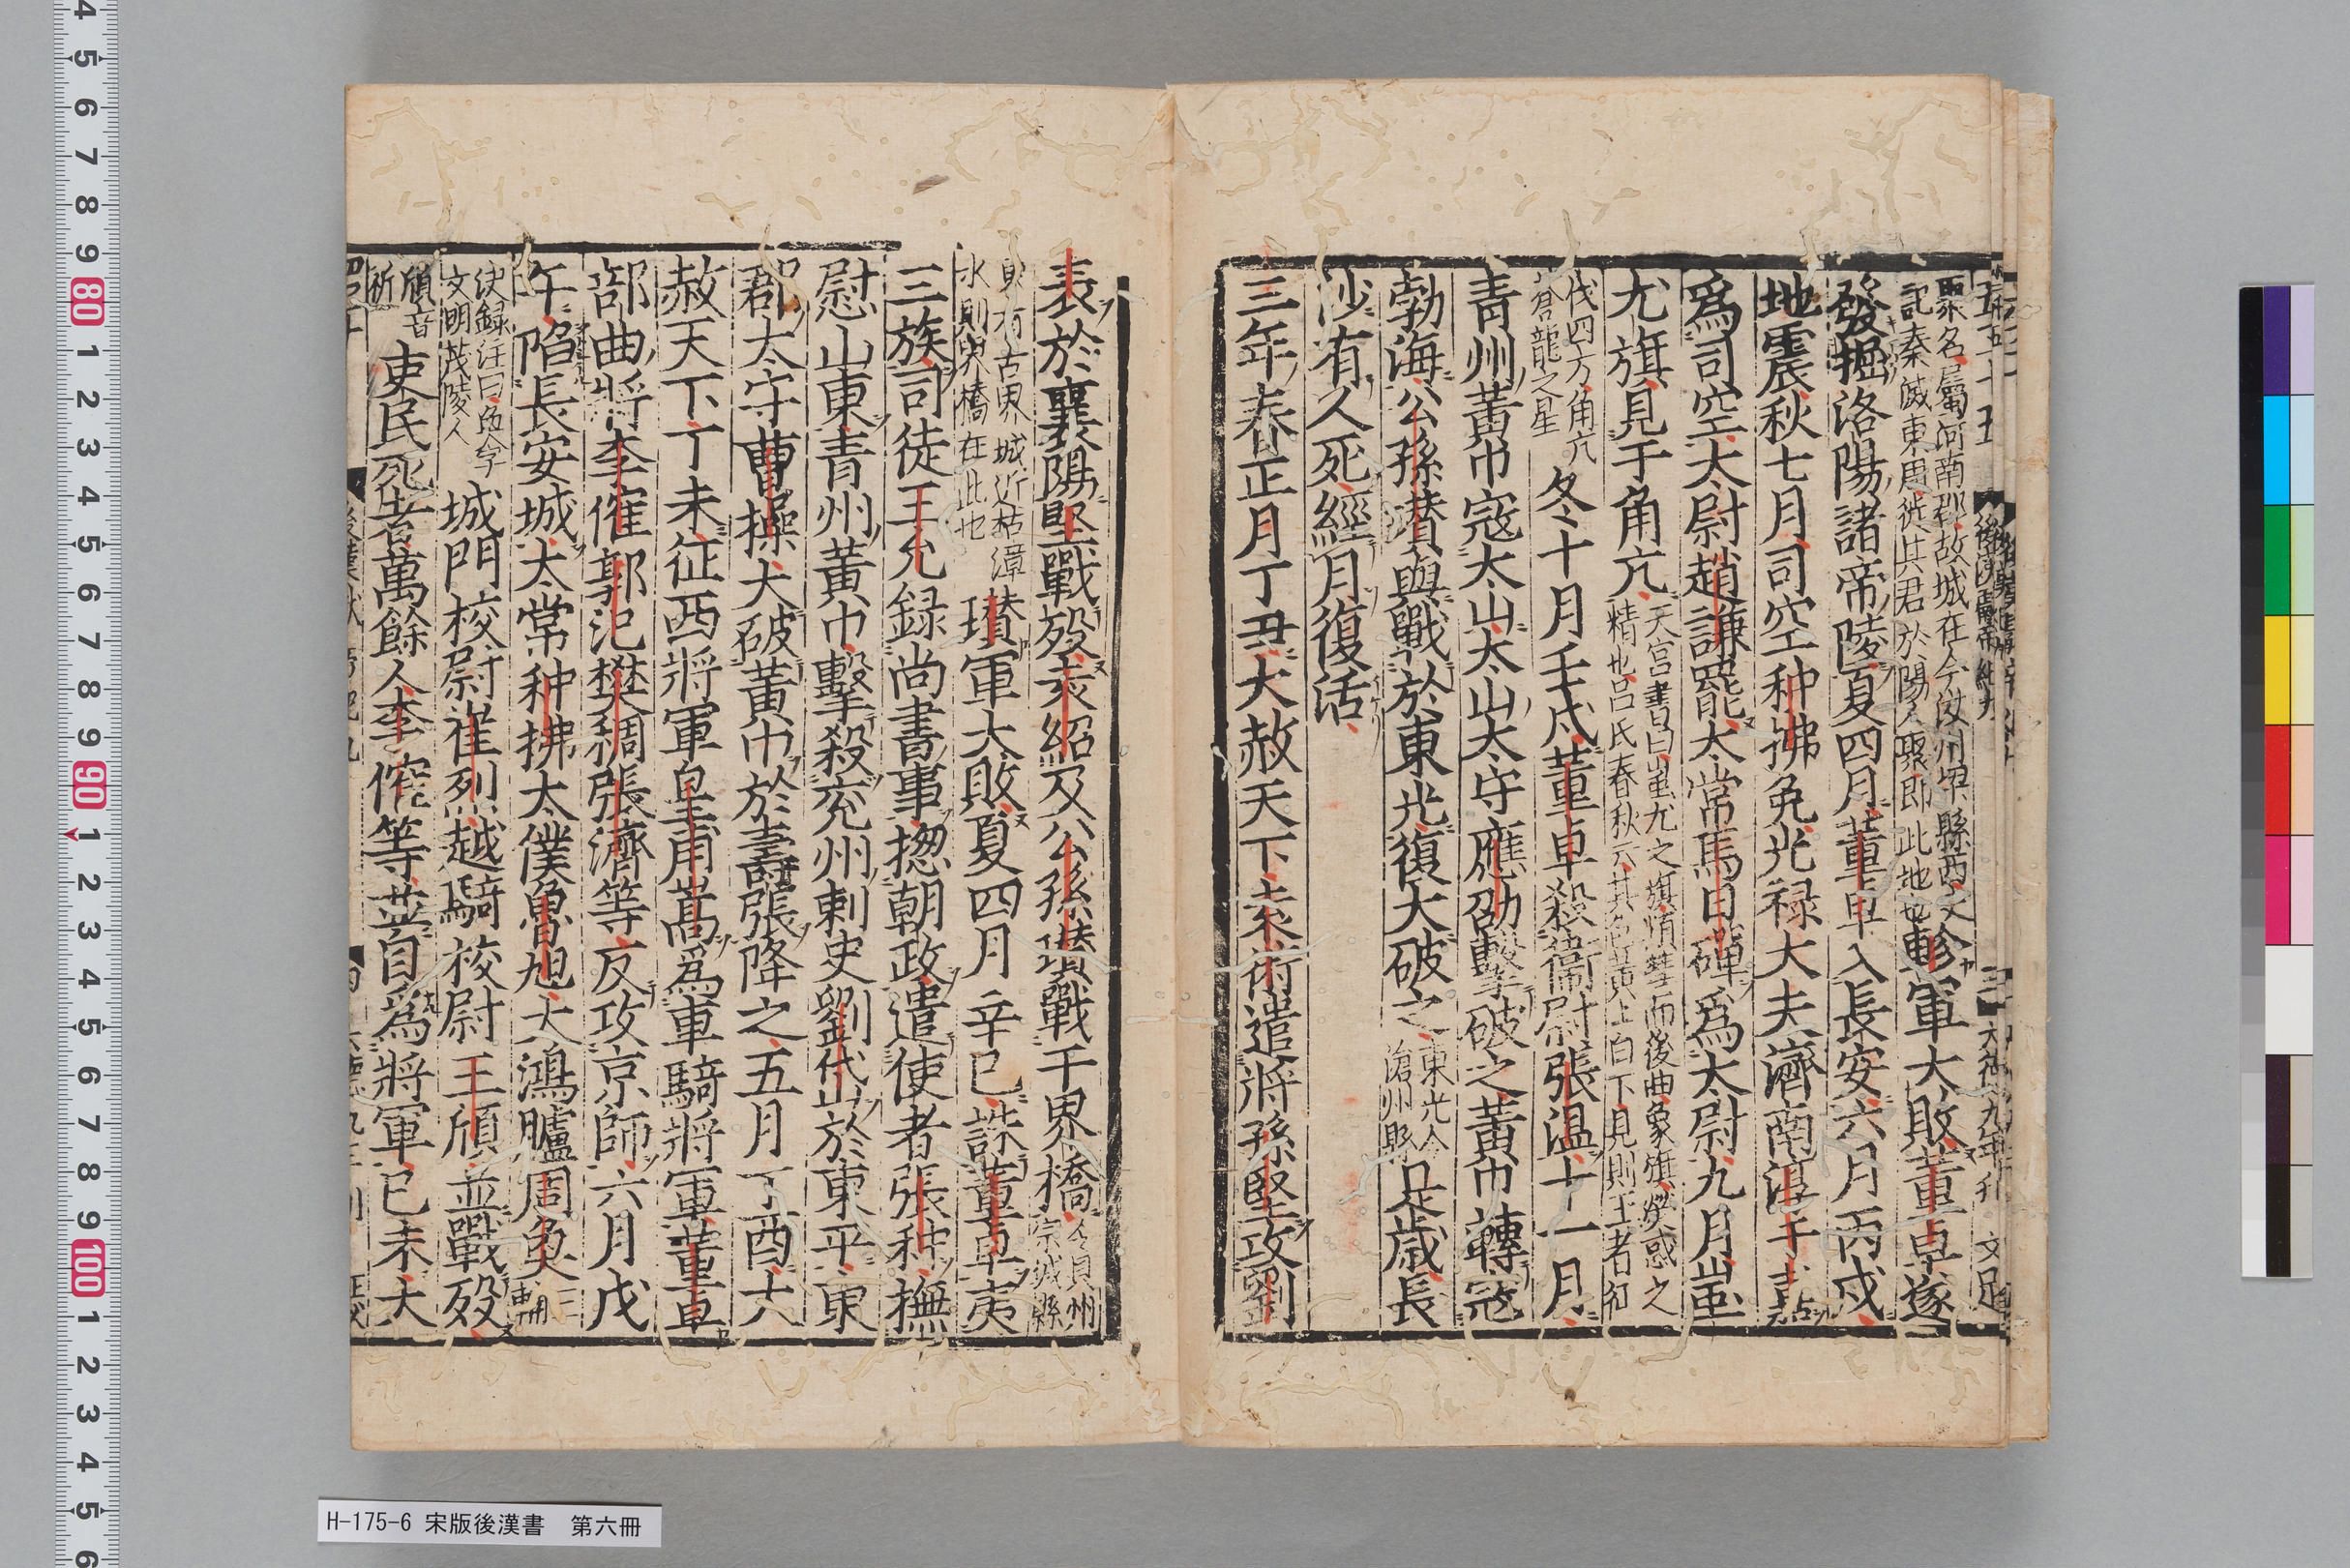 聚名屬河南郡故城在今汝州梁縣西史
記秦滅東周徙其君於陽人聚即此地也軫軍大敗董卓遂
發掘洛陽諸帝陵夏四月董卓入長安六月丙戌
地震秋七月司空种拂免光禄大夫濟南淳于嘉
爲司空太尉趙謙罷太常馬日磾爲太尉九月蚩
尤旗見于角亢天官書曰蚩尤之旗類彗而後曲象旗熒惑之
精也吕氏春秋云其色黄上白下見則王者征
伐四方角亢
蒼龍之星冬十月壬戌董卓殺衞尉張温十一月
青州黄巾寇太山太山太守應劭擊破之黄巾轉寇
勃海公孫瓉與戰於東光復大破之東光今
滄州縣是歲長
沙有人死經月復活
三年春正月丁丑大赦天下袁術遣將孫堅攻劉
表於襄陽堅戰殁袁紹及公孫瓉戰于界橋今貝州
宗城縣
東有古界城近枯漳
水則界橋在此也瓉軍大敗夏四月辛巳誅董卓夷
三族司徒王允録尚書事揔朝政遣使者張种撫
慰山東青州黄巾擊殺兖州刺史劉代於東平東
郡太守曹操大破黄巾於壽張降之五月丁酉大
赦天下丁未征西將軍皇甫嵩爲車騎將軍董卓
部曲將李傕郭汜樊稠張濟等反攻京師六月戊
午陷長安城太常种拂太僕魯旭大鴻臚周奐三
輔
决録注曰奐字
文明茂陵人城門校尉崔烈越騎校尉王頎並戰殁
頎音
祈吏民死者萬餘人李傕等並自爲將軍已未大
H-175-6 宋版後漢書　第六冊